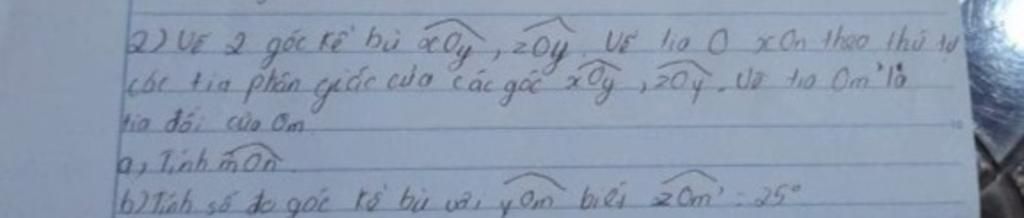 2) Vẽ 2 góc kề bù xOy, zOy. Vẽ tia O xOn theo thứ tự
các tia phân giác của các góc xOy, zOy. Vẽ tia Om' là
tia đối của Om
a, Tính mOn
b) Tính số đo góc kề bù với yOm biết zOm' = 25°